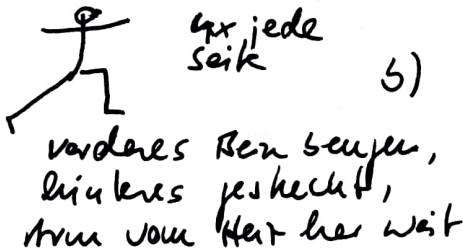 4x jede
Seite
5)
vorderes Bein beugen,
hinteres gestreckt,
Arm vom Herz her weit